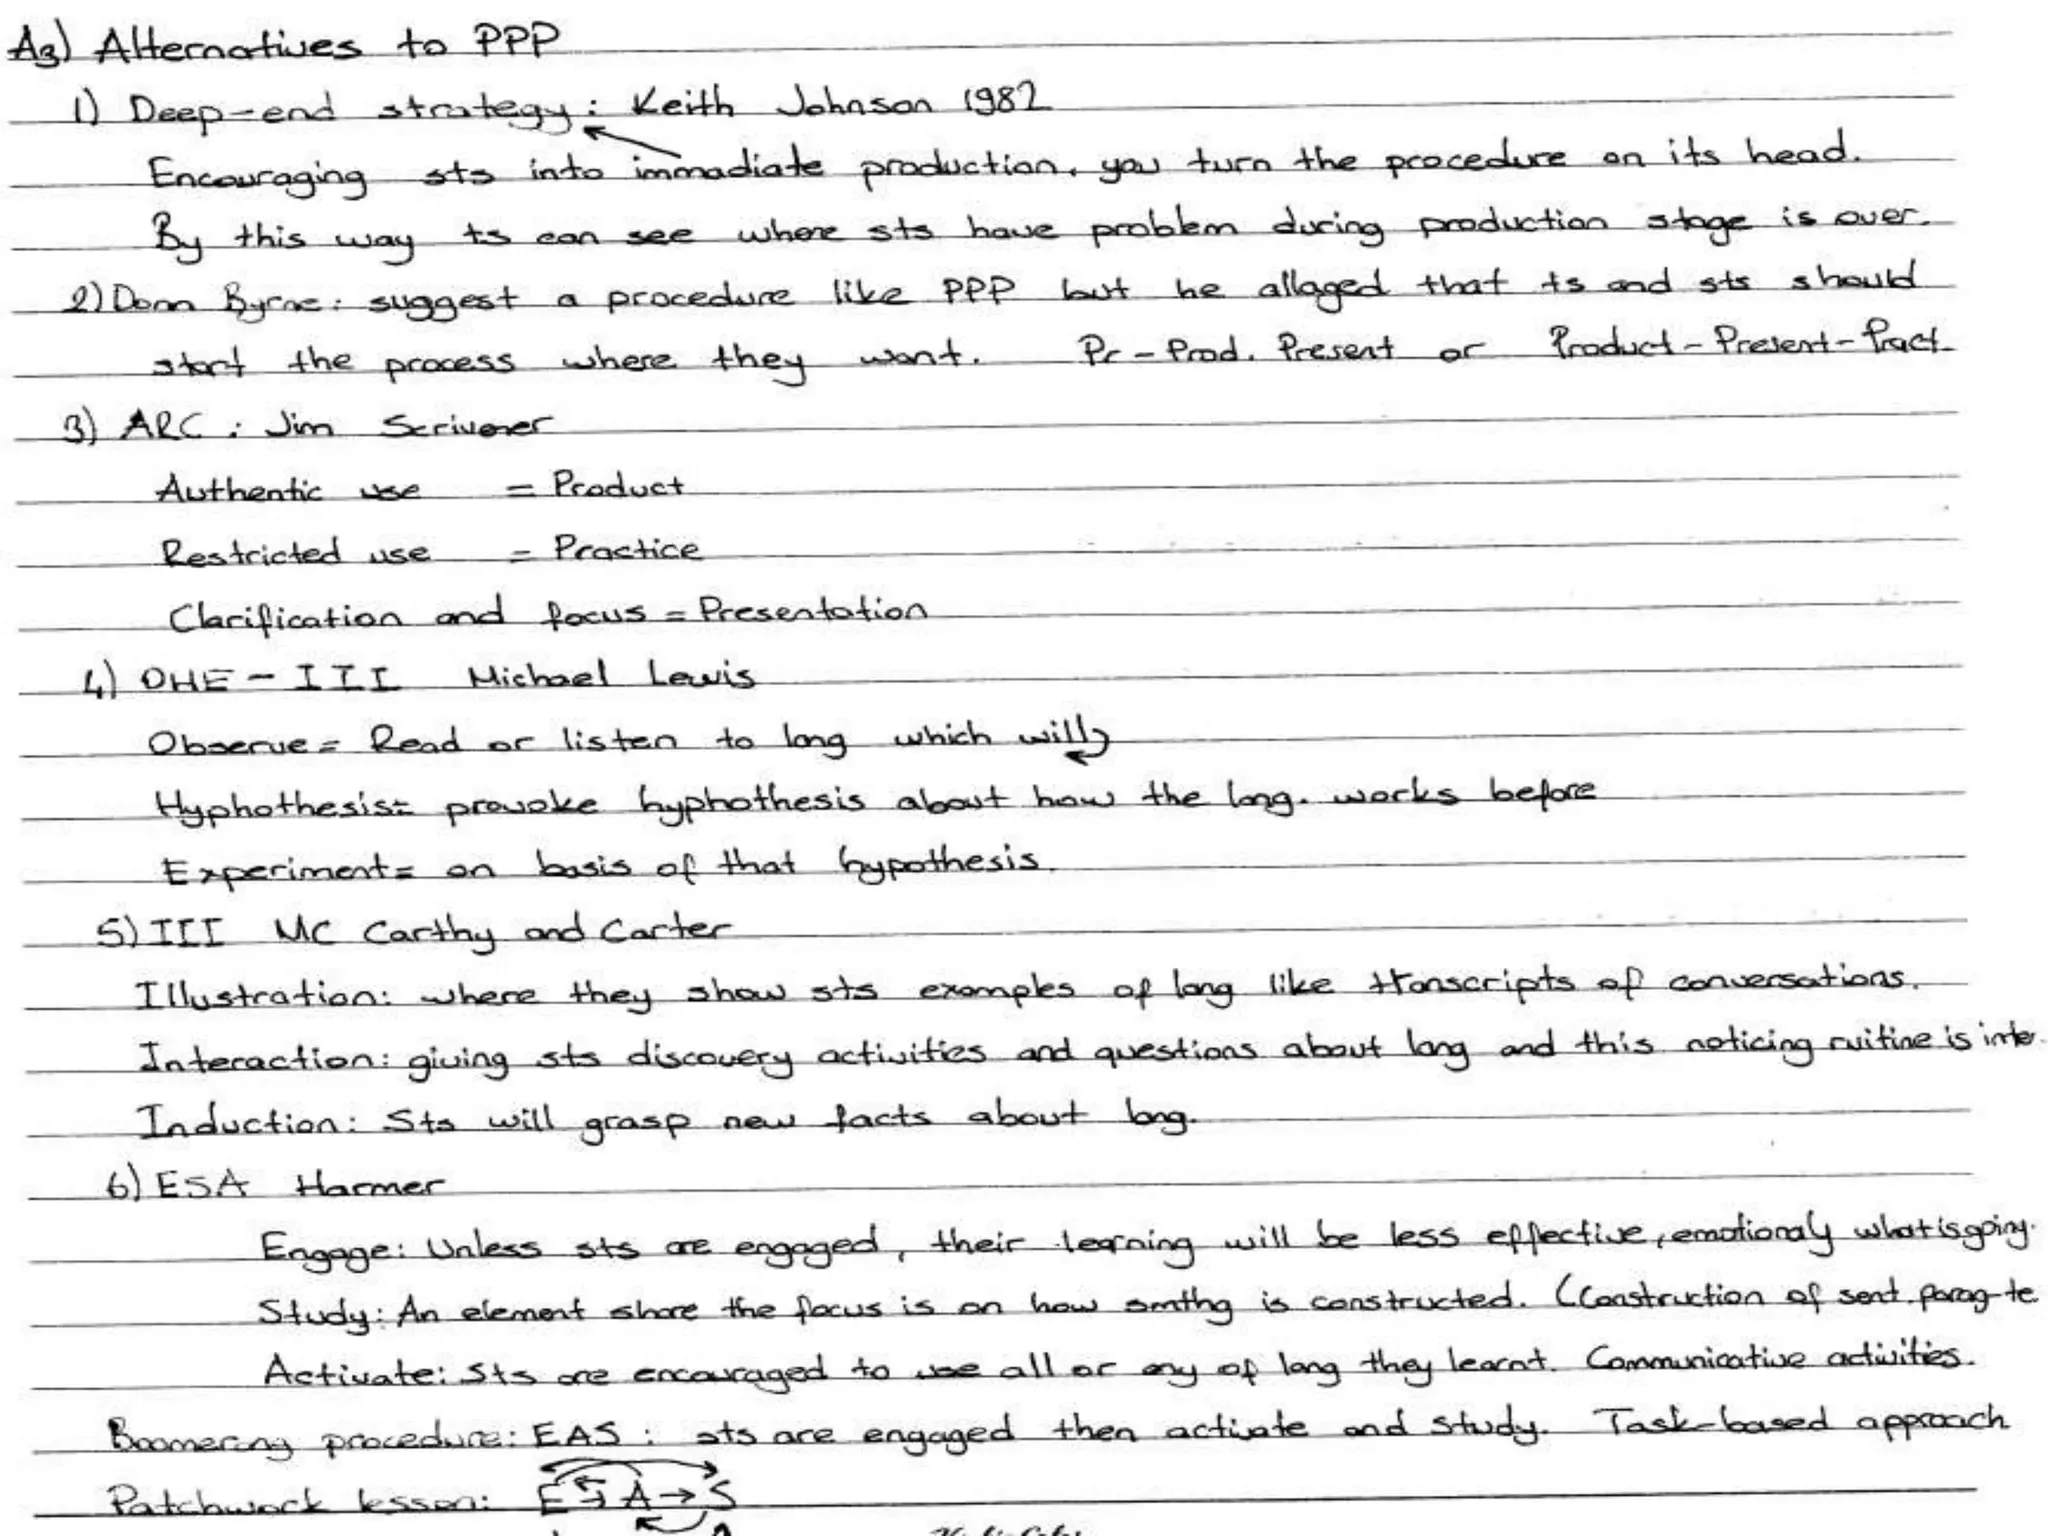 A3) Alternatives to PPP
1) Deep-end strategy: Keith Johnson 1982
Encouraging sts into immadiate production, you turn the procedure on its head.
By this way ts can see where sts have problem during production stage is over.
2) Donn Byrne: suggest a procedure like PPP but he allaged that ts and sts should
start the process where they want. Pr - Prod. Present or Product - Present - Pract.
3) ARC : Jim Scrivener
Authentic use = Product
Restricted use = Practice
Clarification and focus = Presentation
4) OHE - III Michael Lewis
Observe = Read or listen to lang which will
Hyphothesis = provoke hyphothesis about how the lang. works before
Experiment = on basis of that hypothesis.
5) III MC Carthy and Carter
Illustration: where they show sts examples of lang like transcripts of conversations.
Interaction: giving sts discovery activities and questions about lang and this noticing ruitine is inter.
Induction: Sts will grasp new facts about lang.
6) ESA Harmer
Engage: Unless sts are engaged, their learning will be less effective, emotionaly what is going.
Study: An element share the focus is on how smthg is constructed. (Construction of sent. parag-te
Activate: Sts are encouraged to use all or any of lang they learnt. Communicative activities.
Boomerang procedure: EAS : sts are engaged then activate and study. Task-based approach
Patchwork lesson: E → A → S